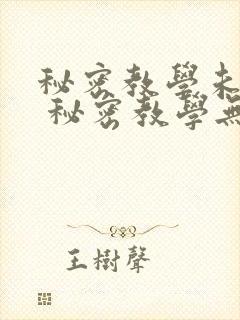 秘密教學未
秘密教學無
王樹聲